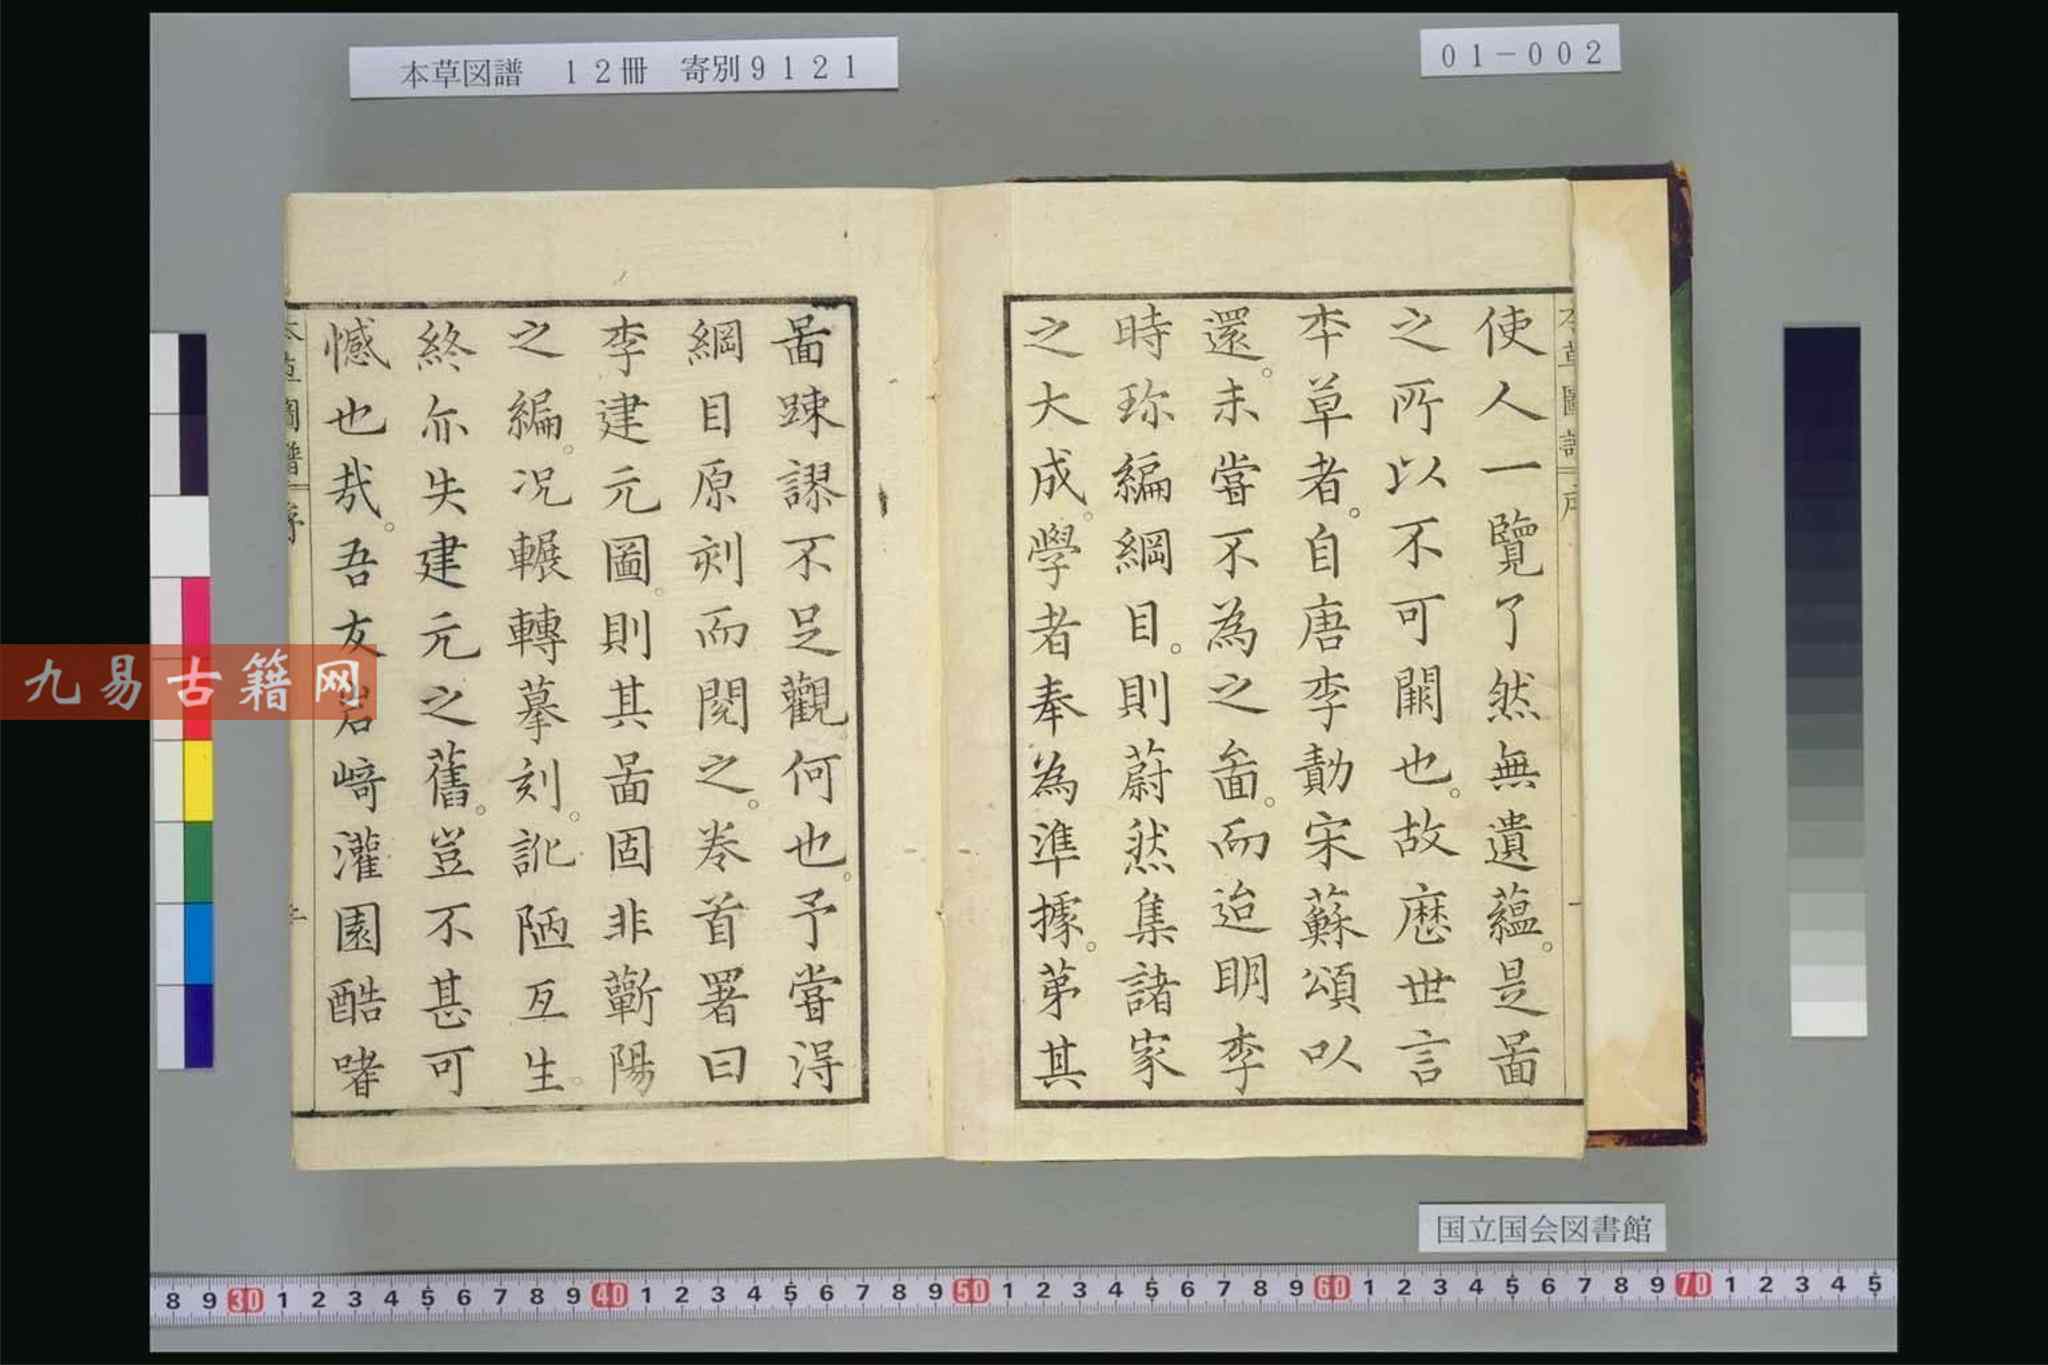 本草図譜　１２冊　寄別９１２１
０１－００２
使人一覽了然無遺蘊。是啚
之所以不可闕也。故歴世言
本草者。自唐李勣宋蘇頌以
還。未嘗不為之啚。而迨明李
時珍編綱目。則蔚然集諸家
之大成。學者奉為準據。苐其
啚踈謬不足觀何也。予嘗得
綱目原刻而閱之。卷首署曰
李建元圖。則其啚固非蘄陽
之編。况輾轉摹刻。訛陋互生。
終亦失建元之舊。豈不甚可
憾也哉。吾友岩﨑灌園酷嗜
圖譜
序
九易古籍网
国立国会図書館
8 9 30 1 2 3 4 5 6 7 8 9 40 1 2 3 4 5 6 7 8 9 50 1 2 3 4 5 6 7 8 9 60 1 2 3 4 5 6 7 8 9 70 1 2 3 4 5